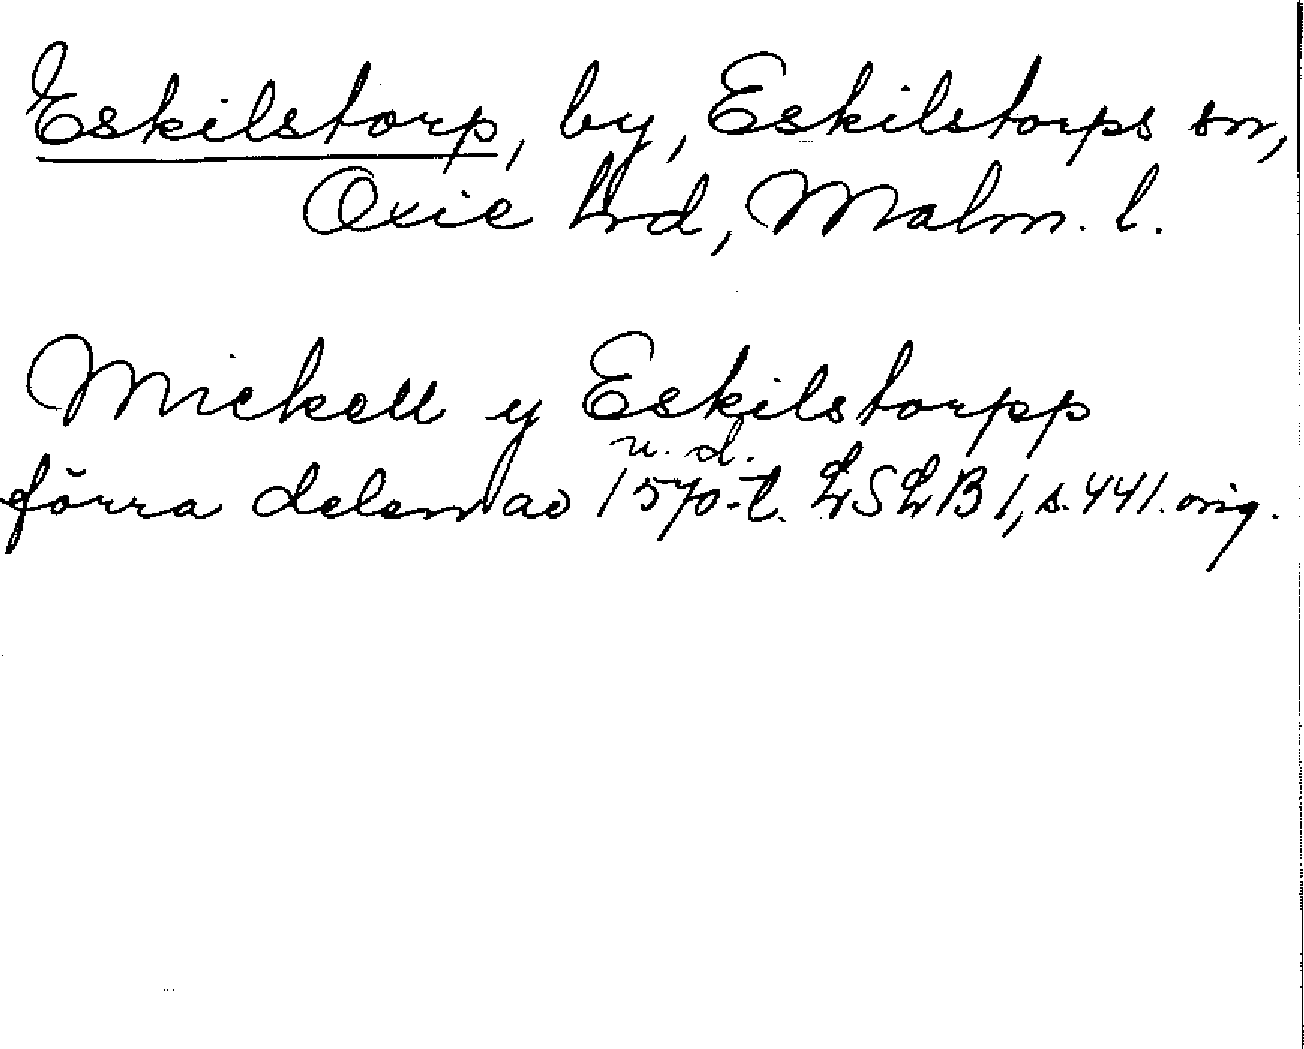 Eskilstorp, by, Eskilstorps sn,
Oxie hrd, Malm. l.
Mickell y Eskilstorpp
u. d.
förra delen av 1570-t. LSLB 1, s. 441. orig.